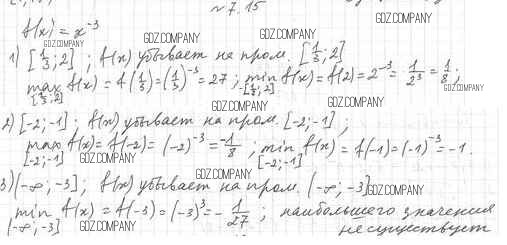 № 7.15
GDZ.COMPANY
f(x) = x⁻³
GDZ.COMPANY GDZ.COMPANY GDZ.COMPANY
1) [1/3; 2] ; f(x) убывает на пром. [1/3; 2]
max f(x) = f(1/3) = (1/3)⁻³ = 27 ; min f(x) = f(2) = 2⁻³ = 1/2³ = 1/8 ;
[1/3; 2] [1/3; 2] GDZ.COMPANY
GDZ.COMPANY GDZ.COMPANY
2) [-2; -1] ; f(x) убывает на пром. [-2; -1] ;
max f(x) = f(-2) = (-2)⁻³ = -1/8 ; min f(x) = f(-1) = (-1)⁻³ = -1.
[-2; -1] GDZ.COMPANY [-2; -1] GDZ.COMPANY
GDZ.COMPANY
3) (-∞; -3] ; f(x) убывает на пром. (-∞; -3] GDZ.COMPANY
min f(x) = f(-3) = (-3)³ = - 1/27 ; наибольшего значения
(-∞; -3] GDZ.COMPANY GDZ.COMPANY не существует